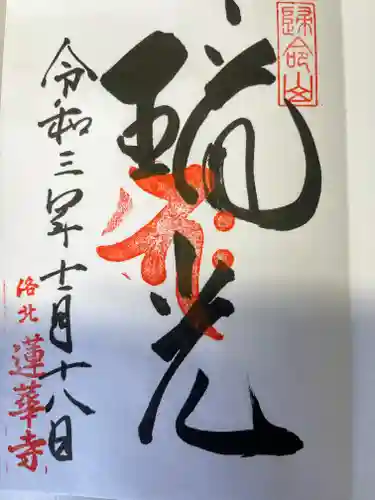 歸命山
瑠光
令和三年十一月十八日
洛北
蓮華寺